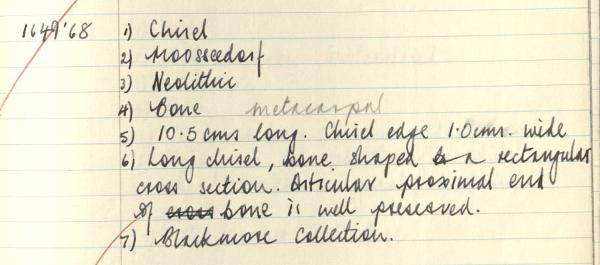 1649'68 1) Chisel
2) Moosseedorf
3) Neolithic
4) Bone metacarpal
5) 10.5 cms long. Chisel edge 1.0cms. wide
6) Long chisel, bone shaped to a rectangular
cross section. Articular proximal end
of cross bone is well preserved.
7) Blackmore Collection.